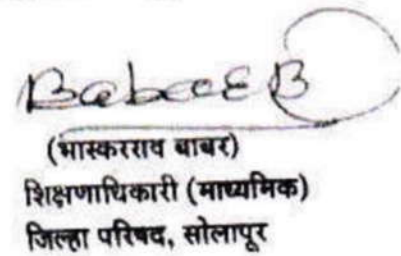 (भास्करराव बाबर)
शिक्षणाधिकारी (माध्यमिक)
जिल्हा परिषद, सोलापूर